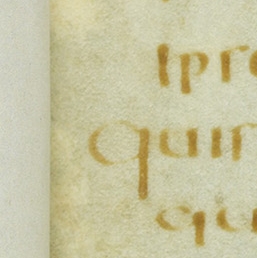 ipro
quir
equ